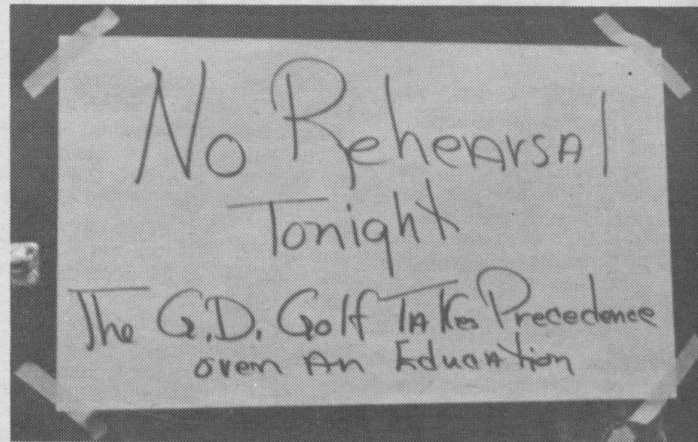 No Rehearsal
Tonight
The G.D. Golf Takes Precedence
over An Education